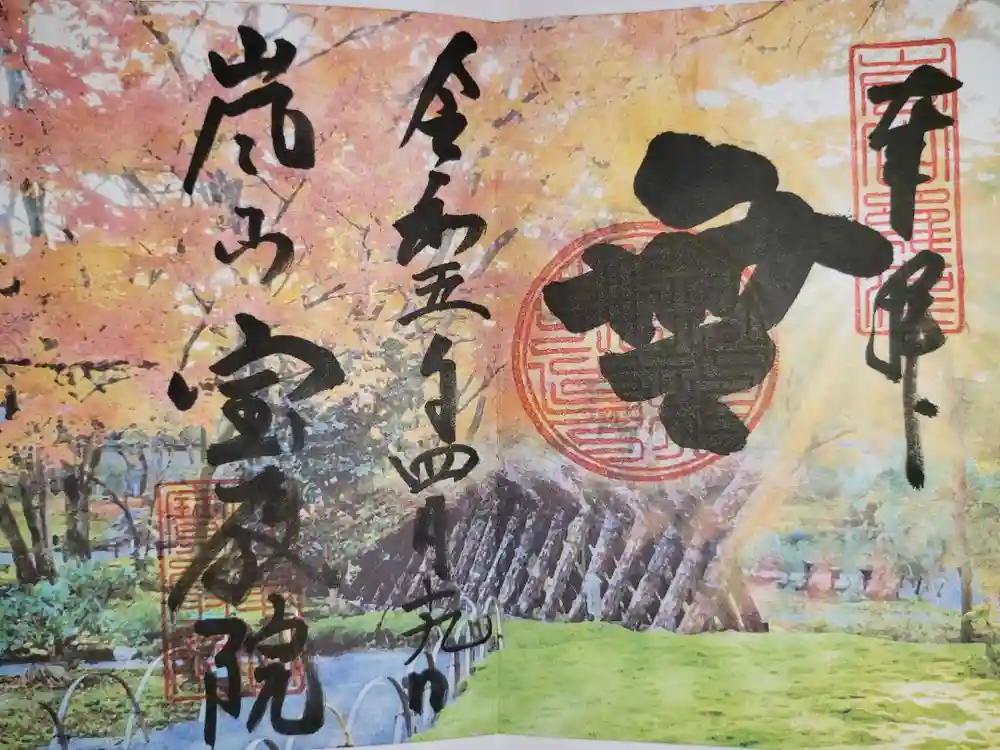 奉拝
無
令和五年四月九日
嵐山宝厳院